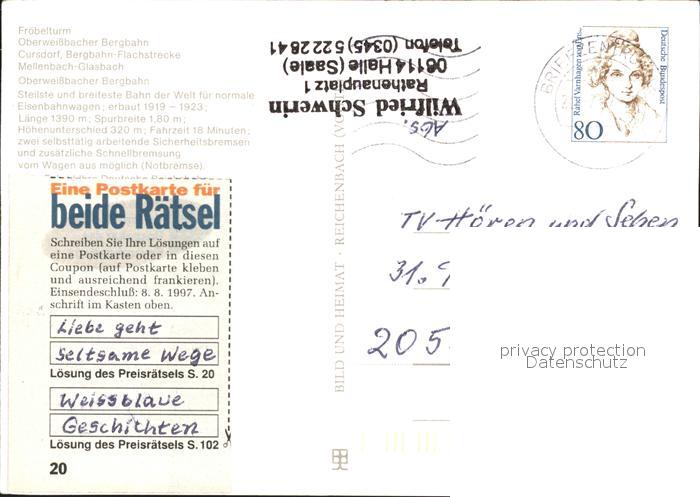 Fröbelturm
Oberweißbacher Bergbahn
Cursdorf, Bergbahn-Flachstrecke
Mellenbach-Glasbach
Oberweißbacher Bergbahn
Steilste und breiteste Bahn der Welt für normale
Eisenbahnwagen; erbaut 1919 – 1923;
Länge 1390 m; Spurbreite 1,80 m;
Höhenunterschied 320 m; Fahrzeit 18 Minuten;
zwei selbsttätig arbeitende Sicherheitsbremsen
und zusätzliche Schnellbremsung
vom Wagen aus möglich (Notbremse).
Eine Postkarte für
beide Rätsel
Schreiben Sie Ihre Lösungen auf
eine Postkarte oder in diesen
Coupon (auf Postkarte kleben
und ausreichend frankieren).
Einsendeschluß: 8. 8. 1997. An-
schrift im Kasten oben.
Liebe geht
seltsame Wege
Lösung des Preisrätsels S. 20
Weissblaue
Geschichten
Lösung des Preisrätsels S. 102
20
BILD UND HEIMAT · REICHENBACH
Abs.
Wilfried Schwerin
Rathenauplatz 1
06114 Halle (Saale)
Telefon (0345) 5 22 28 41
Rahel Varnhagen von Ense
Deutsche Bundespost
80
TV-Hören und Sehen
31.
205
privacy protection
Datenschutz